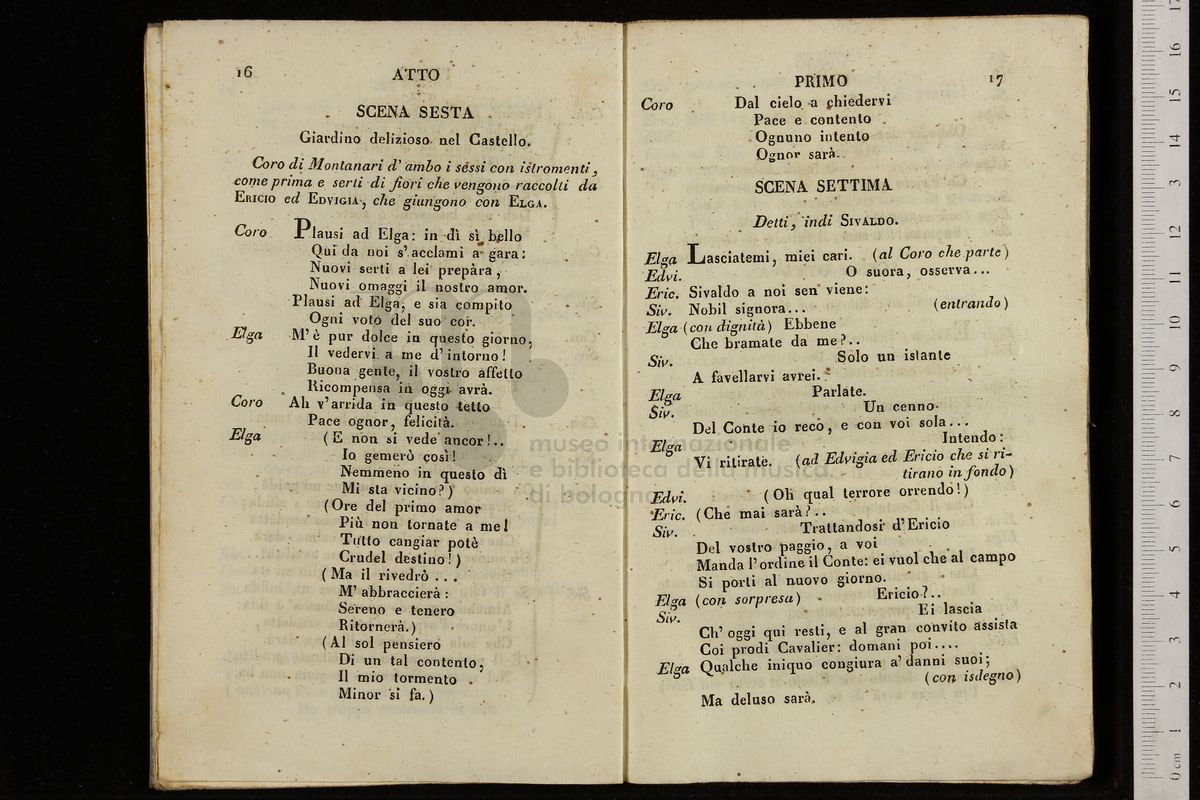 16
ATTO
SCENA SESTA
Giardino delizioso nel Castello.
Coro di Montanari d' ambo i sessi con istromenti,
come prima e serti di fiori che vengono raccolti da
ERICIO ed EDVIGIA, che giungono con ELGA.
Coro Plausi ad Elga: in dì sì bello
Qui da noi s' acclami a gara:
Nuovi serti a lei prepàra,
Nuovi omaggi il nostro amor.
Plausi ad Elga, e sia compito
Ogni voto del suo cor.
Elga M' è pur dolce in questo giorno,
Il vedervi a me d' intorno!
Buona gente, il vostro affetto
Ricompensa in oggi avrà.
Coro Ah v'arrida in questo tetto
Pace ognor, felicità.
Elga (E non si vede ancor!..
Io gemerò così!
Nemmeno in questo dì
Mi sta vicino?)
(Ore del primo amor
Più non tornate a me!
Tutto cangiar potè
Crudel destino!)
(Ma il rivedrò...
M' abbraccierà:
Sereno e tenero
Ritornerà.)
(Al sol pensiero
Di un tal contento,
Il mio tormento
Minor si fa.)
PRIMO
17
Coro Dal cielo a chiedervi
Pace e contento
Ognuno intento
Ognor sarà.
SCENA SETTIMA
Detti, indi SIVALDO.
Elga Lasciatemi, miei cari. (al Coro che parte)
Edvi. O suora, osserva...
Eric. Sivaldo a noi sen viene:
Siv. Nobil signora... (entrando)
Elga (con dignità) Ebbene
Che bramate da me?..
Siv. Solo un istante
A favellarvi avrei.
Elga Parlate.
Siv. Un cenno
Del Conte io recò, e con voi sola...
Elga Intendo:
Vi ritirate. (ad Edvigia ed Ericio che si ri-
tirano in fondo)
Edvi. (Oh qual terrore orrendo!)
Eric. (Che mai sarà?..
Siv. Trattandosi d'Ericio
Del vostro paggio, a voi
Manda l'ordine il Conte: ei vuol che al campo
Si porti al nuovo giorno.
Elga (con sorpresa) Ericio?..
Siv. Ei lascia
Ch' oggi qui resti, e al gran convito assista
Coi prodi Cavalier: domani poi....
Elga Qualche iniquo congiura a' danni suoi;
(con isdegno)
Ma deluso sarà.
museo internazionale
e biblioteca della musica
di bologna
0 cm 1 2 3 4 5 6 7 8 9 10 11 12 13 14 15 16 17